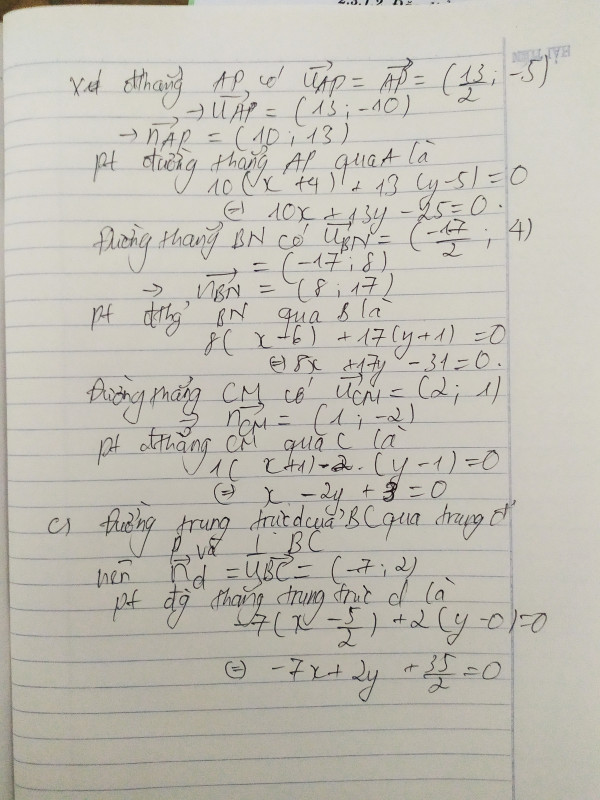 2.3.1.2
HẢI TIẾN
Xét đthẳng AP có u⃗AP = A⃗P = (13/2 ; -5)
→ u⃗AP = (13 ; -10)
→ n⃗AP = (10 ; 13)
pt đường thẳng AP qua A là
10(x +4) + 13 (y-5) = 0
⇔ 10x + 13y - 25 = 0.
Đường thẳng BN có u⃗BN = (-17/2 ; 4)
= (-17 ; 8)
→ n⃗BN = (8 ; 17)
pt đthg BN qua B là
8( x -6) + 17(y+1) = 0
⇔ 8x +17y - 31 = 0.
Đường thẳng CM có u⃗CM = (2 ; 1)
→ n⃗CM = (1 ; -2)
pt đthẳng CM qua C là
1( x+1) - 2. (y -1) = 0
⇔ x - 2y + 3 = 0
c) Đường trung trực d của BC qua trung đ'
P và ⊥ BC
nên n⃗d = u⃗BC = (-7 ; 2)
pt đg thẳng trung trực d là
-7(x - 5/2) + 2(y -0) = 0
⇔ -7x + 2y + 35/2 = 0